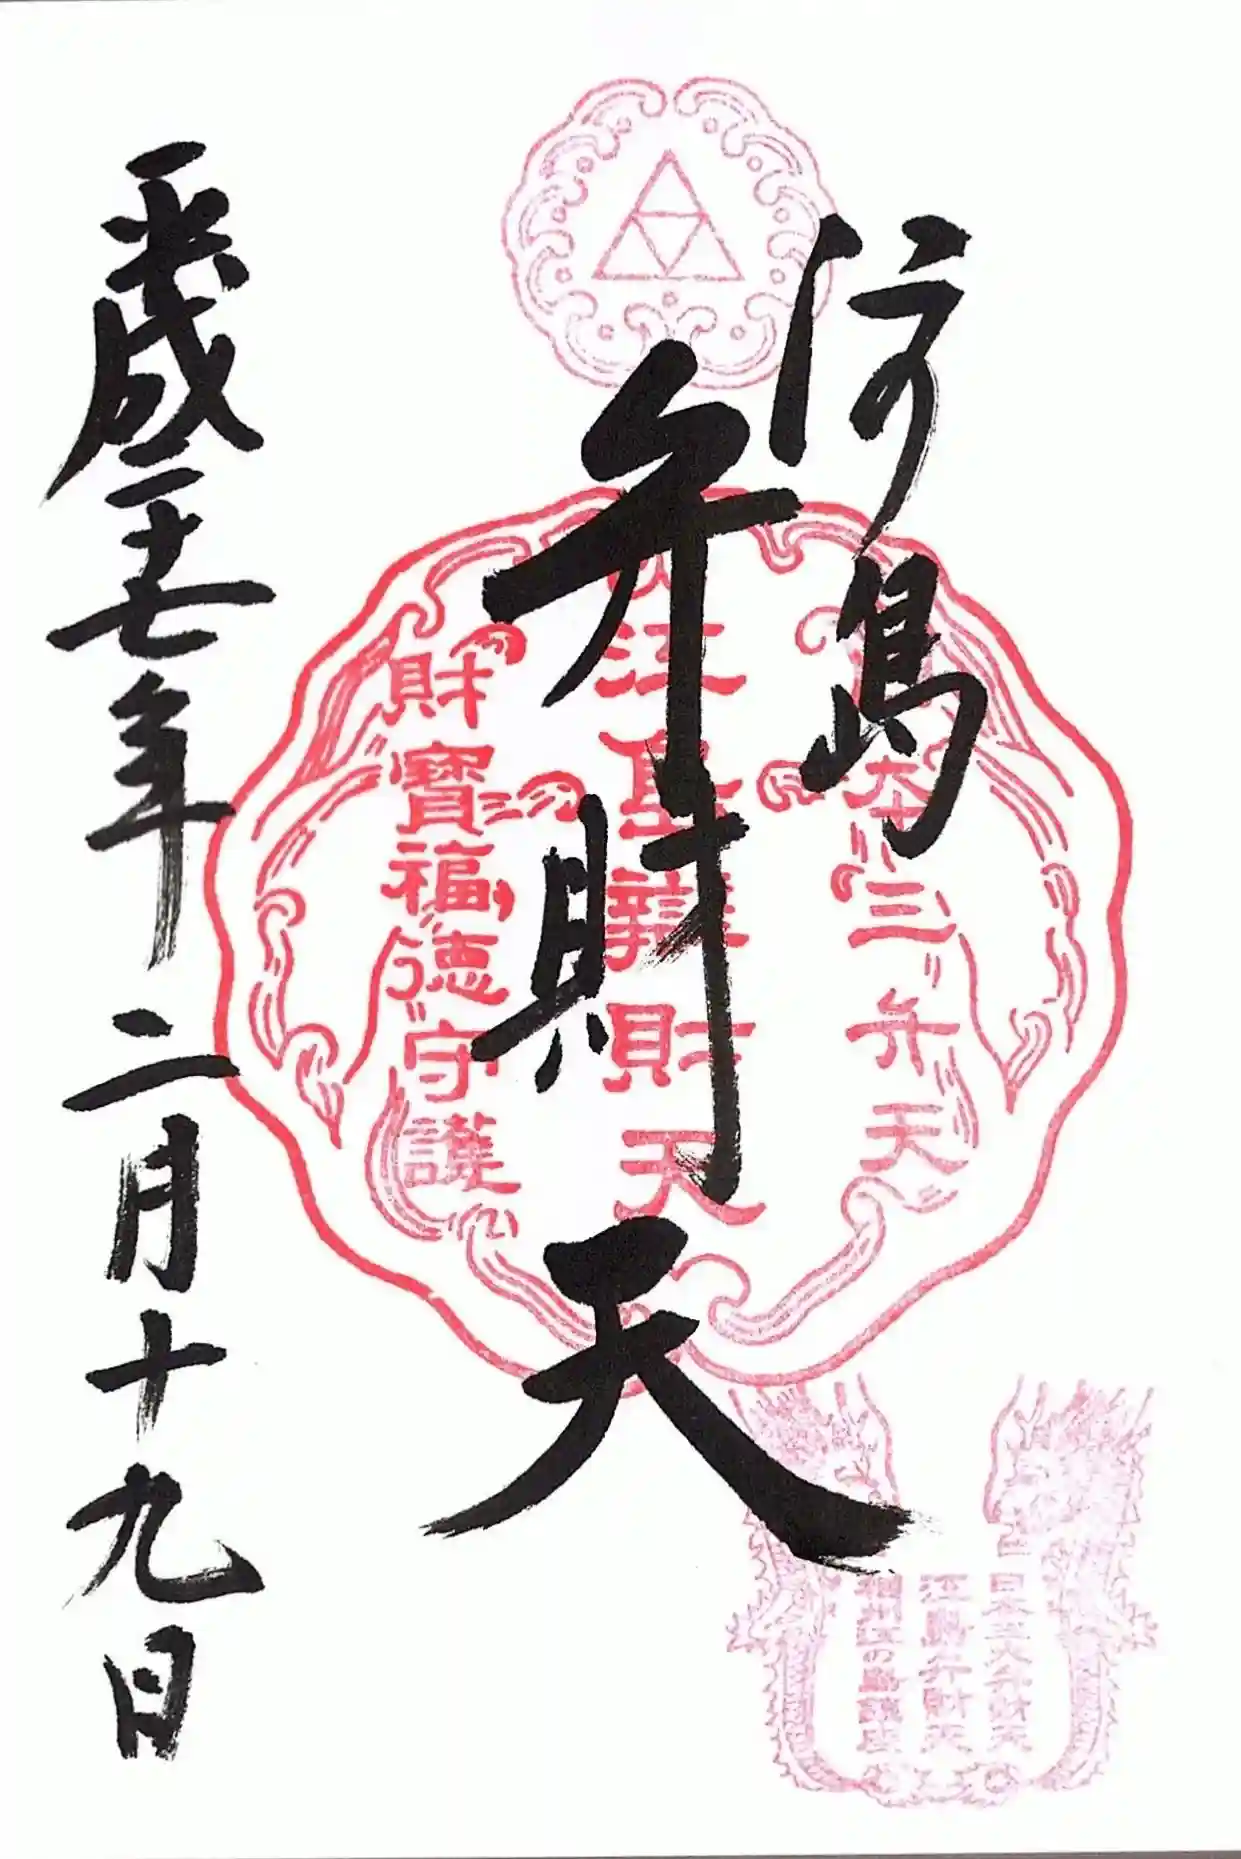 江島
弁財天
平成二十七年二月十九日
本三弁天
江島辨財天
財寶福徳守護
日本三大弁財天
江島弁財天